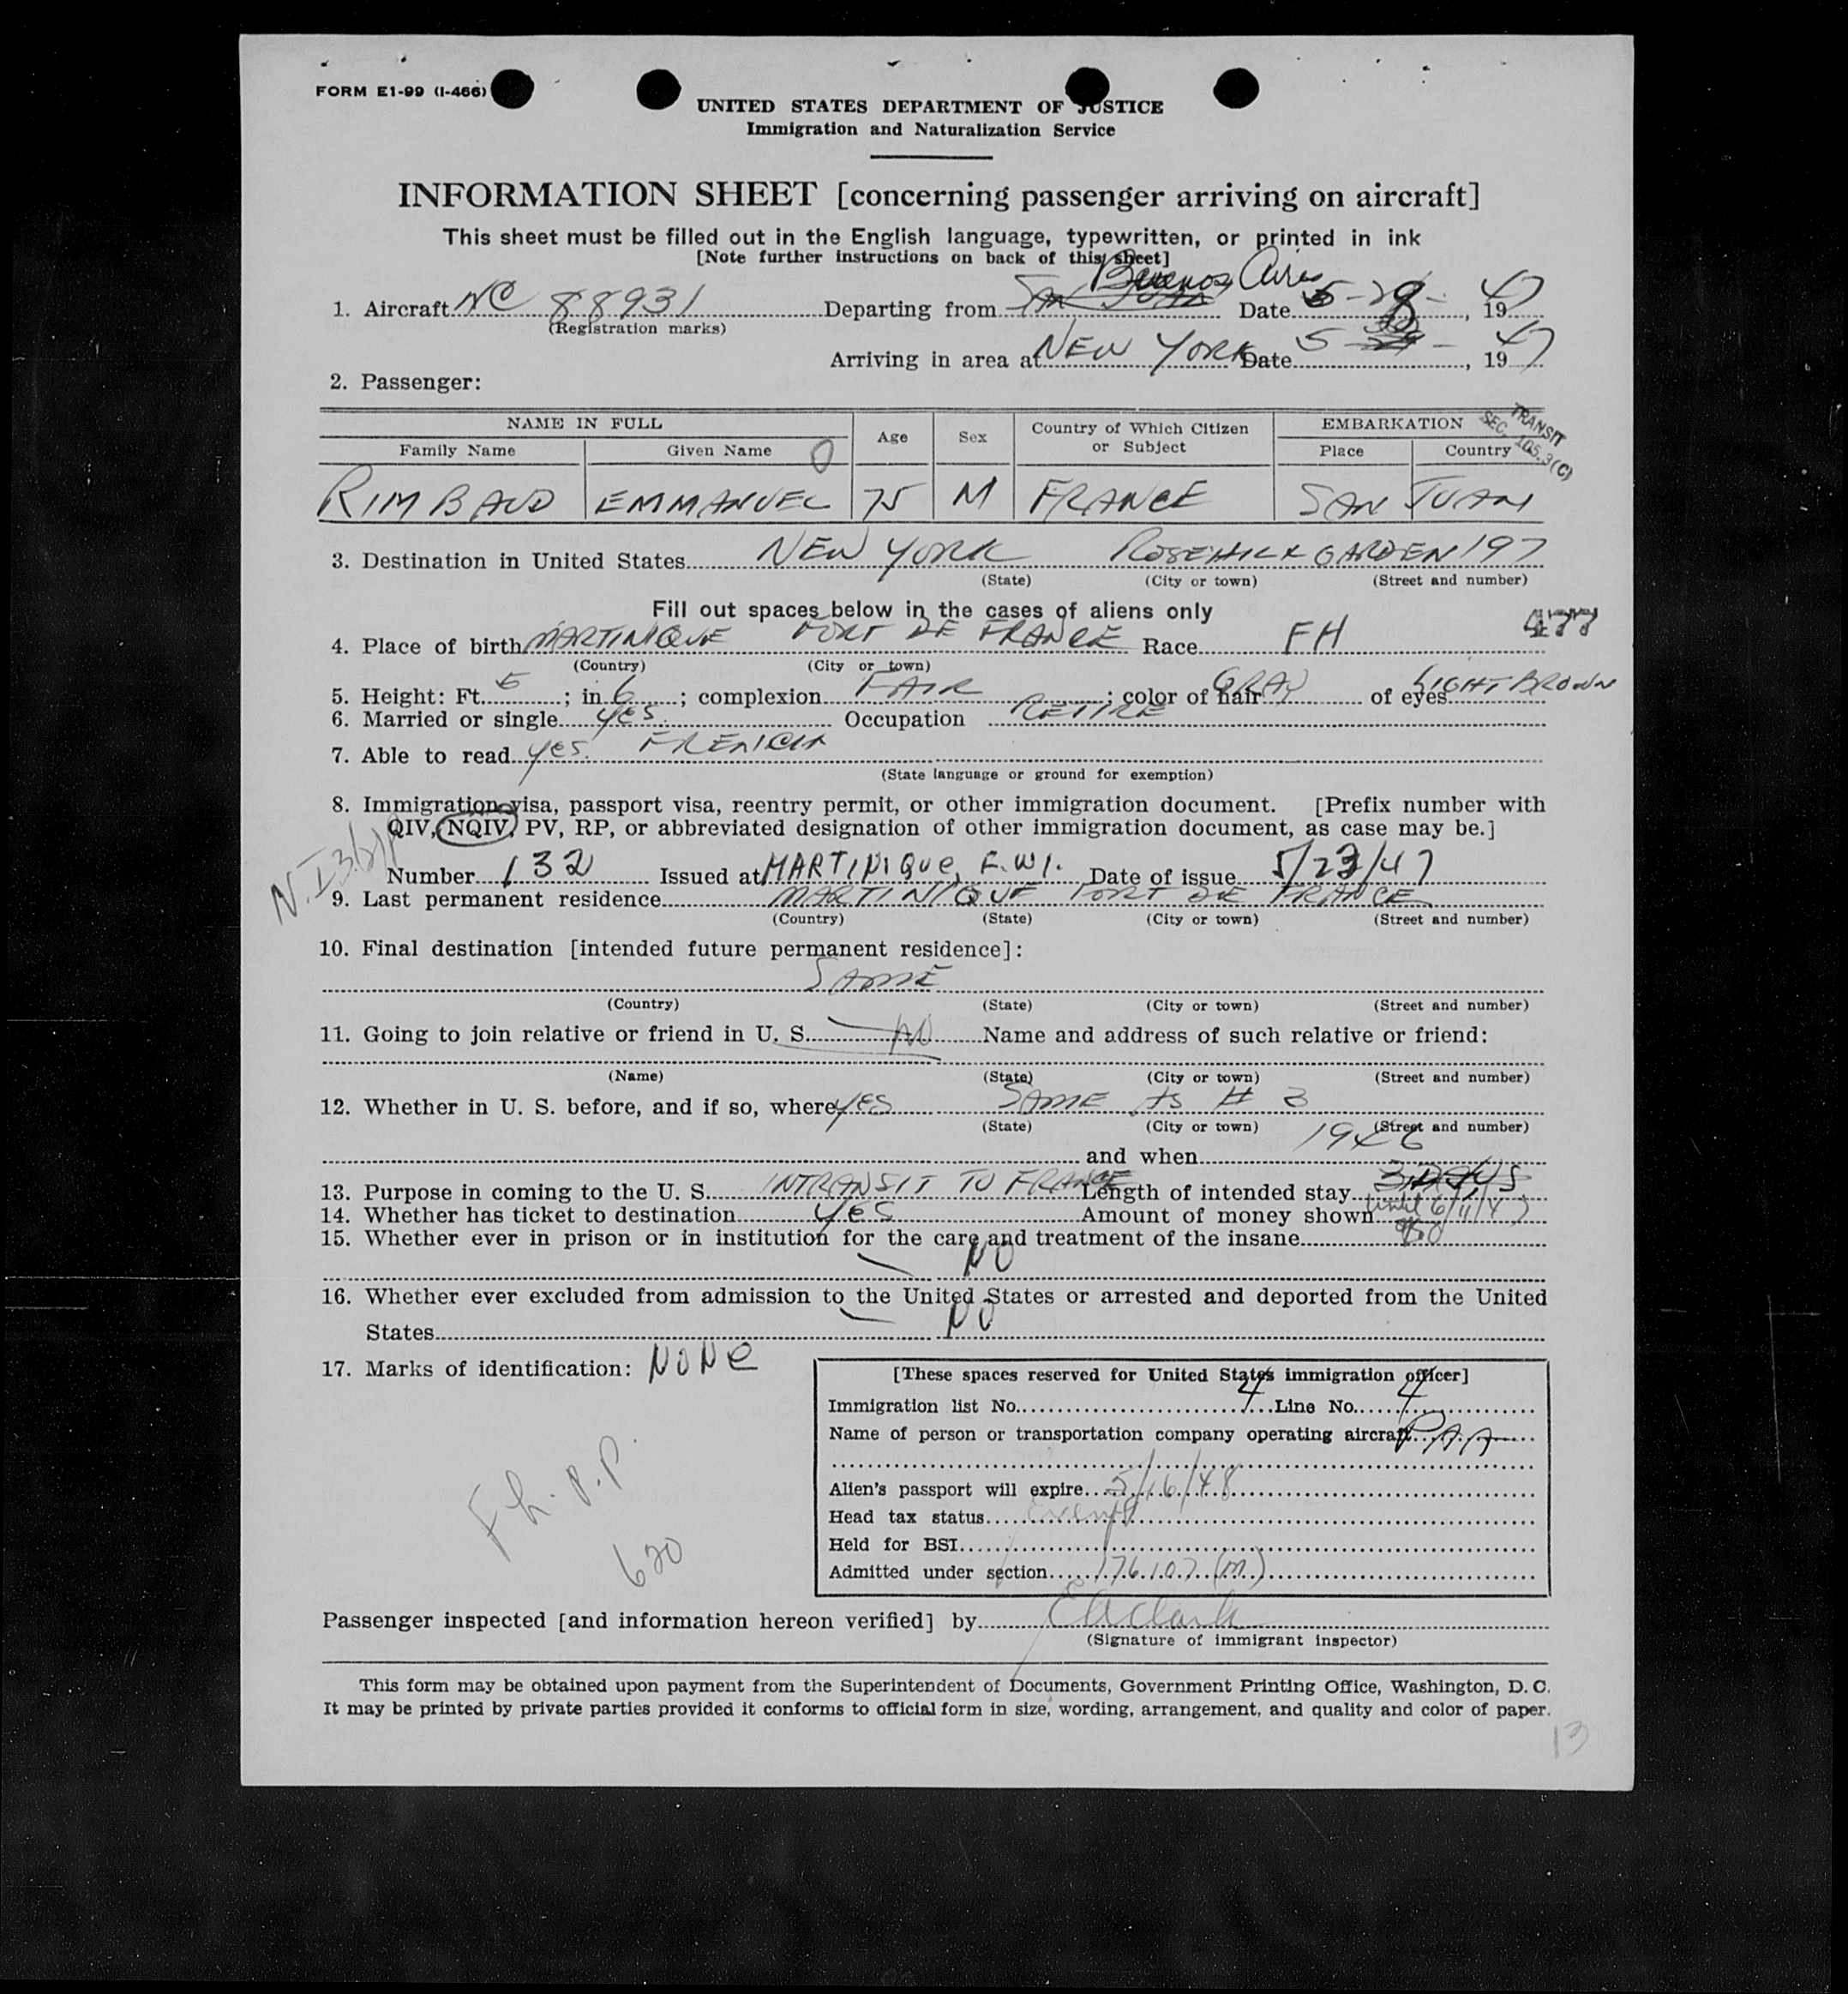 FORM E1-99 (I-466)
UNITED STATES DEPARTMENT OF JUSTICE
Immigration and Naturalization Service
INFORMATION SHEET [concerning passenger arriving on aircraft]
This sheet must be filled out in the English language, typewritten, or printed in ink
[Note further instructions on back of this sheet]
Buenos Aires
1. Aircraft NC 88931 Departing from SAN JUAN Date 5-28-, 1947
(Registration marks)
Arriving in area at NEW YORK Date 5-, 1947
2. Passenger:
TRANSIT
SEC. 105.3(C)
NAME IN FULL Age Sex Country of Which Citizen or Subject EMBARKATION
Family Name Given Name Place Country
RIMBAUD EMMANUEL 75 M FRANCE SAN JUAN
3. Destination in United States NEW YORK ROSEHILL GARDEN 197
(State) (City or town) (Street and number)
Fill out spaces below in the cases of aliens only
477
4. Place of birth MARTINIQUE FORT DE FRANCE Race FH
(Country) (City or town)
5. Height: Ft. 5; in 6; complexion FAIR; color of hair GRAY of eyes LIGHT BROWN
6. Married or single yes Occupation RETIRE
7. Able to read yes. FRENCH
(State language or ground for exemption)
8. Immigration visa, passport visa, reentry permit, or other immigration document. [Prefix number with
QIV, NQIV, PV, RP, or abbreviated designation of other immigration document, as case may be.]
Number 132 Issued at MARTINIQUE, F.W.I. Date of issue 5/23/47
9. Last permanent residence MARTINIQUE FORT DE FRANCE
(Country) (State) (City or town) (Street and number)
10. Final destination [intended future permanent residence]:
SAME
(Country) (State) (City or town) (Street and number)
11. Going to join relative or friend in U. S. NO Name and address of such relative or friend:
(Name) (State) (City or town) (Street and number)
12. Whether in U. S. before, and if so, where yes SAME AS # 3
(State) (City or town) (Street and number)
and when 1946
13. Purpose in coming to the U. S. INTRANSIT TO FRANCE Length of intended stay 3 DAYS
until 6/11/47
14. Whether has ticket to destination yes Amount of money shown
15. Whether ever in prison or in institution for the care and treatment of the insane
NO
16. Whether ever excluded from admission to the United States or arrested and deported from the United
States NO
17. Marks of identification: NONE
[These spaces reserved for United States immigration officer]
Immigration list No. 4 Line No. 4
Name of person or transportation company operating aircraft PAA
Alien's passport will expire 5/16/48
Head tax status exempt
Held for BSI
Admitted under section 176.107 (m)
Fh. P.P.
620
Passenger inspected [and information hereon verified] by EAClark
(Signature of immigrant inspector)
This form may be obtained upon payment from the Superintendent of Documents, Government Printing Office, Washington, D. C.
It may be printed by private parties provided it conforms to official form in size, wording, arrangement, and quality and color of paper.
13